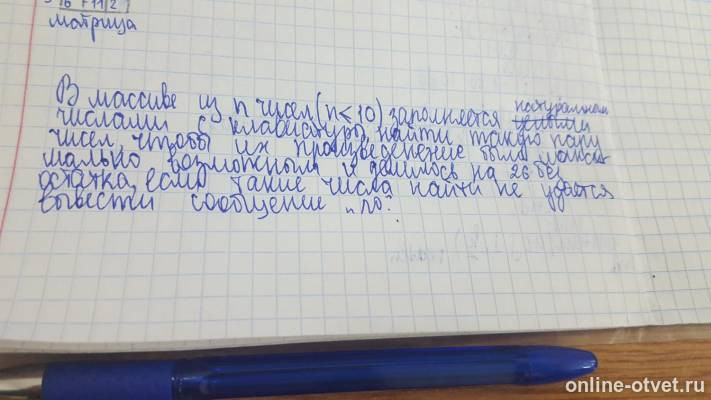 матрица
В массиве из n чисел (n≤10) заполняется натуральными
числами с клавиатуры найти такую пару
чисел, чтобы их произведенение было макси
мально возможным и делилось на 26 без
остатка, если такие числа найти не удается
вывести сообщение "no".
online-otvet.ru